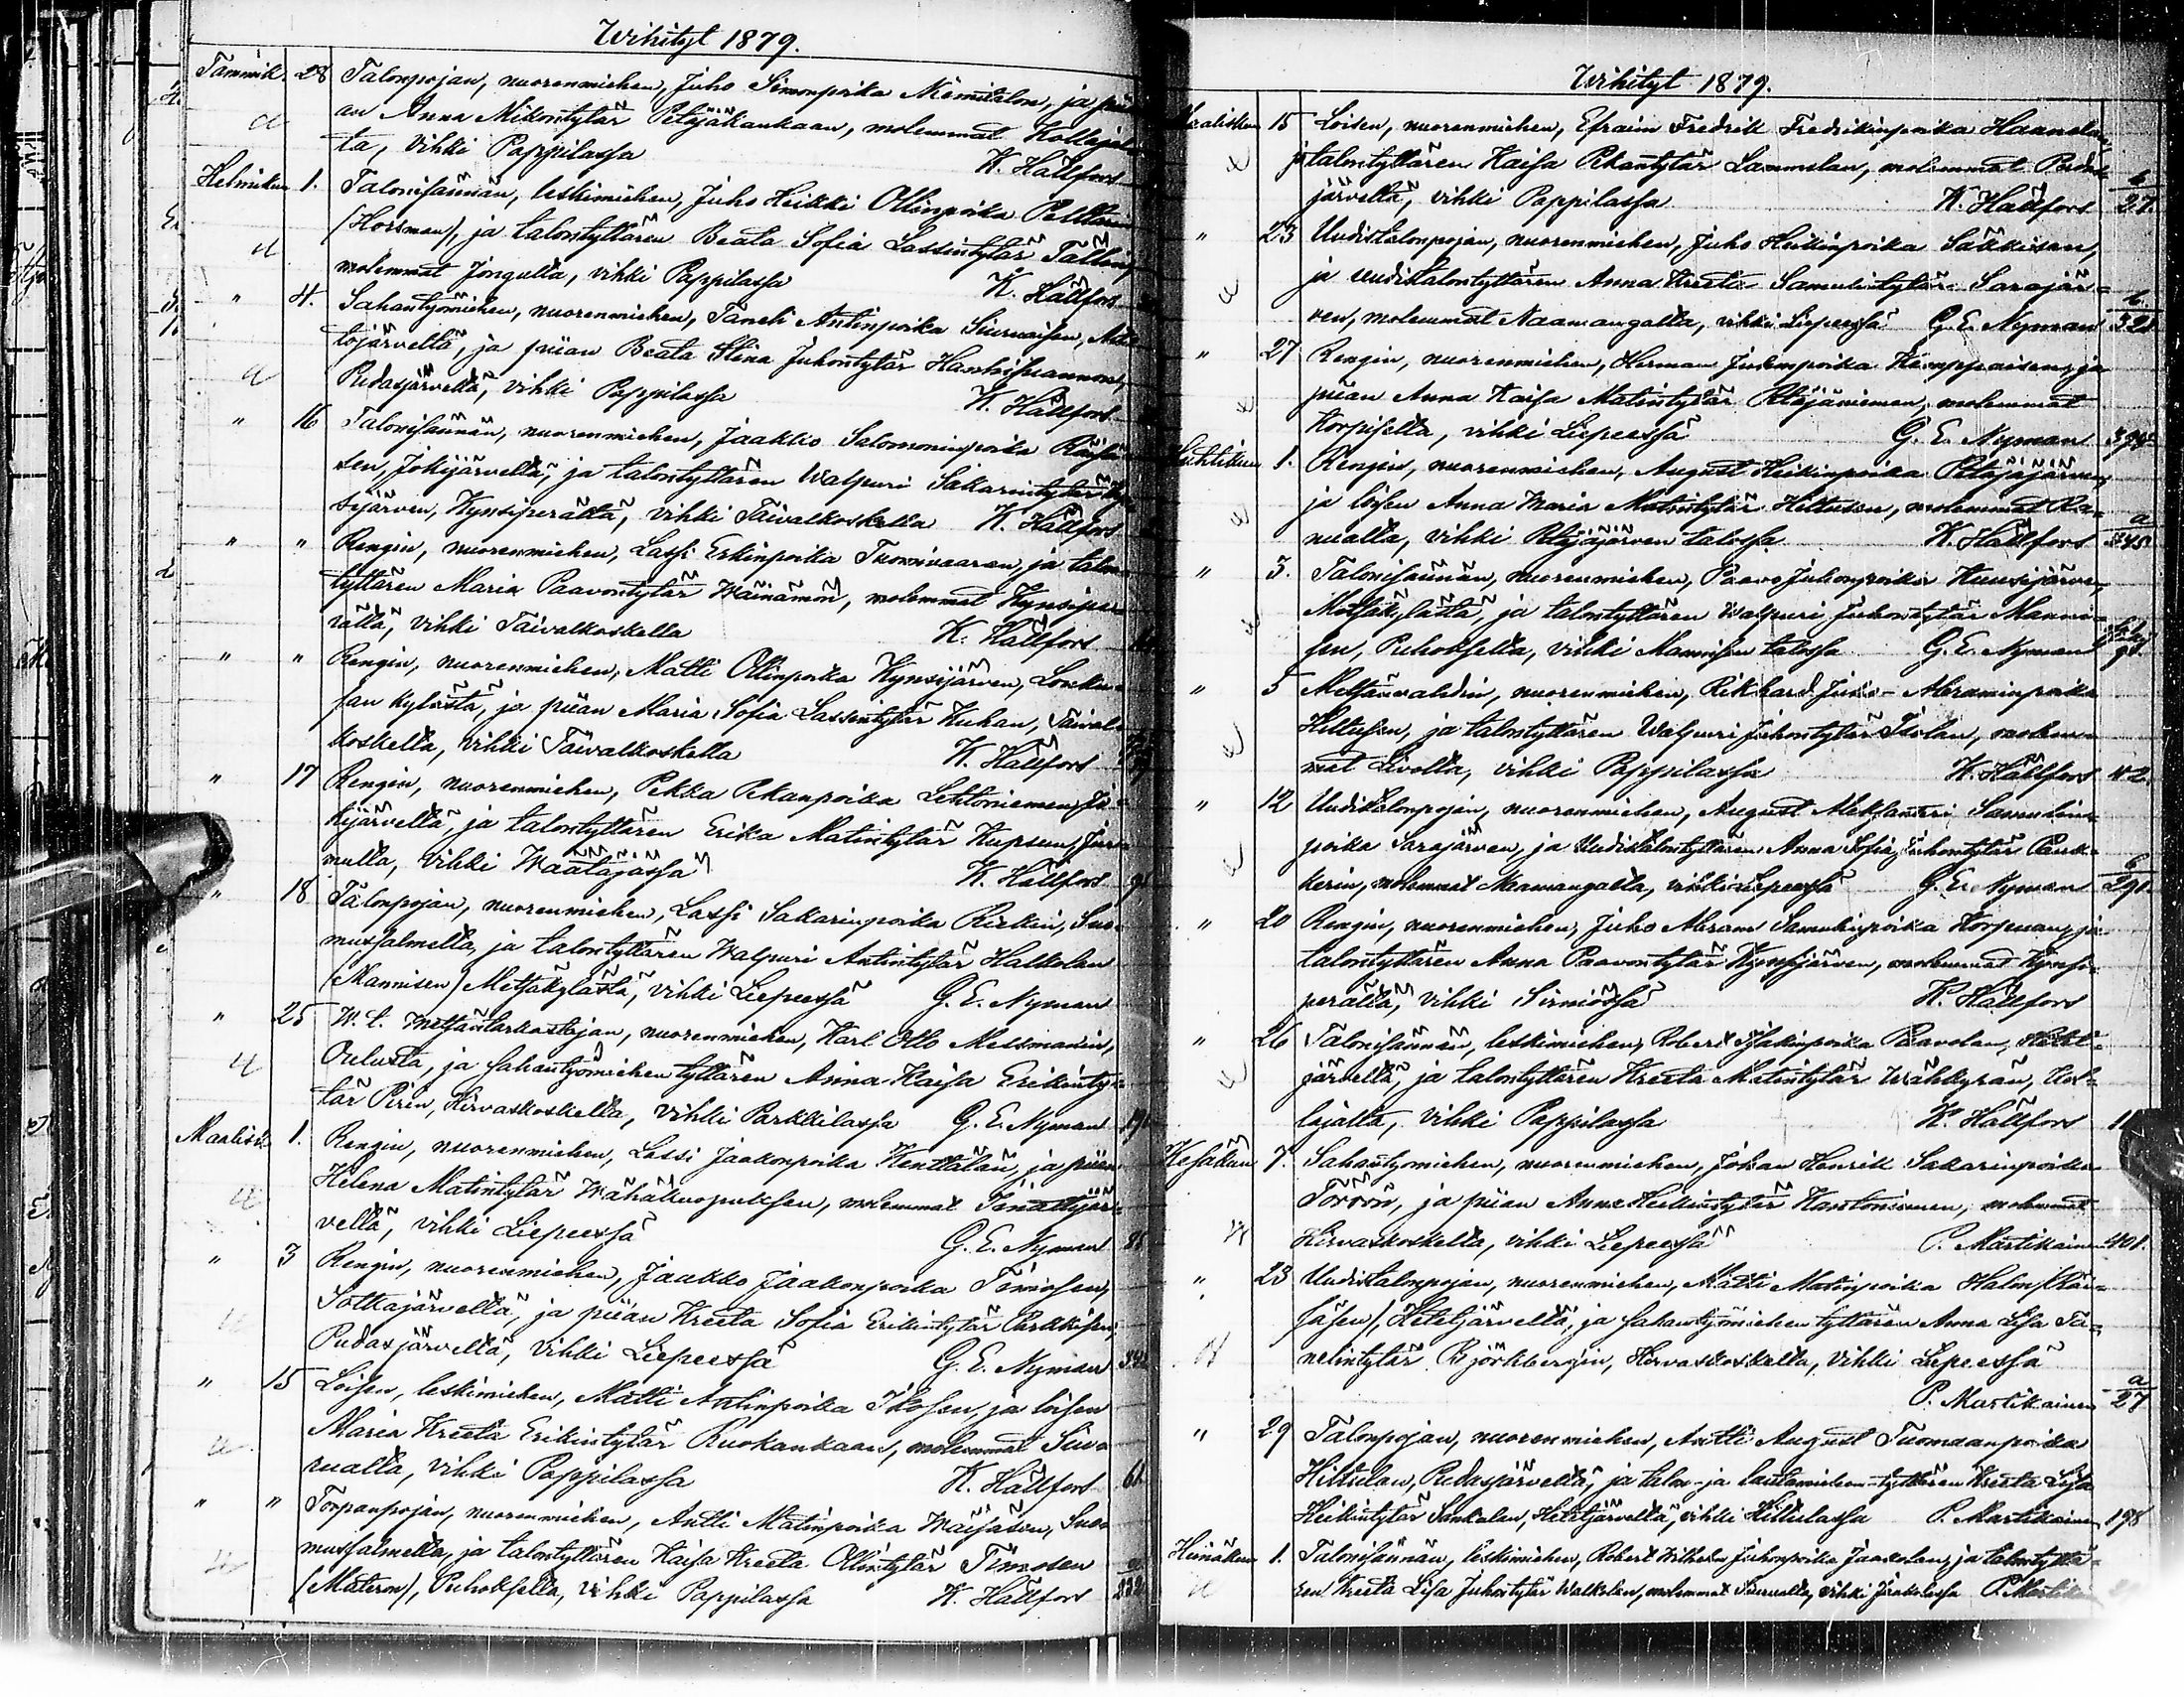 Wihityt 1879.
Tammik. 28 Talonpojan, nuorenmiehen, Juho Simonpoika Niemitalon, ja pii-
an Anna Mikontytär Petäjäkankaan, molemmat Kollajal-
ta, vihki Pappilassa K. Hällfors
Helmikuu 1. Talonisännän, leskimiehen, Juho Heikki Ollinpoika
(Horsman), ja talontyttären Beata Sofia Lassintytär
molemmat Jongulta, vihki Pappilassa K. Hällfors
" 4. Sahantyömiehen, nuorenmiehen, Taneli Antinpoika Siurvaisen,
tojärveltä, ja piian Beata Stina Juhontytär
Pudasjärveltä, vihki Pappilassa K. Hällfors
" 16 Talonisännän, nuorenmiehen, Jaakko Salomoninpoika
sen, Jokijärveltä, ja talontyttären Walpuri Sakarintytär
sijärven, Kynsiperältä, vihki Taivalkoskella K. Hällfors
" " Rengin, nuorenmiehen, Lassi Erkinpoika Tuomivaaran, ja talon-
tyttären Maria Paavontytär Wäinämön, molemmat Kynsipe-
rältä, vihki Taivalkoskella K. Hällfors
" " Rengin, nuorenmiehen, Matti Ollinpoika Kynsijärven, Louku-
san kylästä, ja piian Maria Sofia Lassintytär Kuhan, Taival-
koskelta, vihki Taivalkoskella K. Hällfors
" 17 Rengin, nuorenmiehen, Pekka Pekanpoika Lehtoniemen, Jo-
kijärveltä, ja talontyttären Erika Matintytär Kupsun, Jur-
mulla, vihki Waatajassa K. Hällfors
" 18 Talonpojan, nuorenmiehen, Lassi Sakarinpoika Riekin, Suo-
mussalmelta, ja talontyttären Walpuri Antintytär Halkolan
(Mannisen) Metsäkylästä, vihki Liepeessä G. E. Nyman
" 25 W. t. metsäntarkastajan, nuorenmiehen, Karl Otto Messmanin,
Oulusta, ja sahantyömiehen tyttären Anna Kaisa Erikinty-
tär Pirin, Hirvaskoskelta, vihki Parkkilassa G. E. Nyman
Maalisk. 1. Rengin, nuorenmiehen, Lassi Jaakonpoika Kenttälän, ja piian
Helena Matintytär Wähäkuopuksen, molemmat
veltä, vihki Liepeessä G. E. Nyman
" 3 Rengin, nuorenmiehen, Jaakko Jaakonpoika Timosen,
Sotkajärveltä, ja piian Kreeta Sofia Erikintytär Parkkisen,
Pudasjärveltä, vihki Liepeessä G. E. Nyman
" 15 Loisen, leskimiehen, Matti Antinpoika Ikosen, ja loisen
Maria Kreeta Erikintytär Ruokankaan, molemmat Siu-
rualta, vihki Pappilassa K. Hällfors
" " Torpanpojan, nuorenmiehen, Antti Matinpoika Wäisäsen, Suo-
mussalmelta, ja talontyttären Kaisa Kreeta Ollintytär Timosen
(Materon), Puhoksella, vihki Pappilassa K. Hällfors
Wihityt 1879.
Maaliskuu 15 Loisen, nuorenmiehen, Efraim Fredrik Fredrikinpoika Haanelan,
ja talontyttären Kaisa Pekantytär Lammelan, molemmat Pudas-
järveltä, vihki Pappilassa K. Hällfors 27.
" 23 Uudistalonpojan, nuorenmiehen, Juho Heikinpoika Säkkisen,
ja uudistalontyttären Anna Kreeta Samulintytär Sarajär-
ven, molemmat Naamangalta, vihki Liepeessä G. E. Nyman
" 27 Rengin, nuorenmiehen, Herman Juhonpoika Kemppaisen, ja
piian Anna Kaisa Matintytär Petäjäniemen, molemmat
Korpiselta, vihki Liepeessä G. E. Nyman
Huhtikuu 1. Rengin, nuorenmiehen, August Heikinpoika Petäjäjärven
ja loisen Anna Maria Matintytär Hiltusen, molemmat Ra-
nualta, vihki Petäjäjärven talossa K. Hällfors 345
" 3. Talonisännän, nuorenmiehen, Paavo Juhonpoika Kuusijärven,
Metsäkylästä, ja talontyttären Walpuri Juhontytär Manni-
sen, Puhokselta, vihki Mannisen talossa G. E. Nyman
" 5 Metsänvahdin, nuorenmiehen, Rikhard Juho Abraminpoika
Hiltusen, ja talontyttären Walpuri Juhontytär Ikolan, molem-
mat Livolta, vihki Pappilassa K. Hällfors 42.
" 12 Uudistalonpojan, nuorenmiehen, August Aleksanteri Samulin-
poika Sarajärven, ja uudistalontyttären Anna Sofia Juhontytär Pauk-
kerin, molemmat Naamangalta, vihki Liepeessä G. E. Nyman 291.
" 20 Rengin, nuorenmiehen, Juho Abram Samulinpoika Korpuan, ja
talontyttären Anna Paavontytär Kynsijärven, molemmat Kynsi-
perältä, vihki Sirniössä K. Hällfors
" 26 Talonisännän, leskimiehen, Robert Isakinpoika Paavolan,
järveltä, ja talontyttären Kreeta Matintytär Wähkyrän, Kol-
lajalta, vihki Pappilassa K. Hällfors
Kesäkuu 7. Sahantyömiehen, nuorenmiehen, Johan Henrik Sakarinpoika
Törrön, ja piian Anna Heikintytär Kantoniemen, molemmat
Hirvaskoskelta, vihki Liepeessä P. Martikainen 401.
" 23 Uudistalonpojan, nuorenmiehen, Matti Matinpoika Halon
Hetejärveltä, ja sahantyömiehen tyttären Anna Lisa Ta-
nelintytär Björkbergin, Hirvaskoskelta, vihki Liepeessä
P. Martikainen 27
" 29 Talonpojan, nuorenmiehen, Antti August Tuomaanpoika
Hiltulan, Pudasjärveltä, ja talon- ja lautamiehen-tyttären Kreeta Lisa
Heikintytär Sankalan, Hetejärveltä, vihki Hiltulassa P. Martikainen 198
Heinäkuu 1. Talonisännän, leskimiehen, Robert Wilhelm Juhonpoika Jaakolan, ja talontyttä-
ren Kreeta Lisa Juhontytär Walkolan, molemmat Siurualta, vihki Jaakolassa